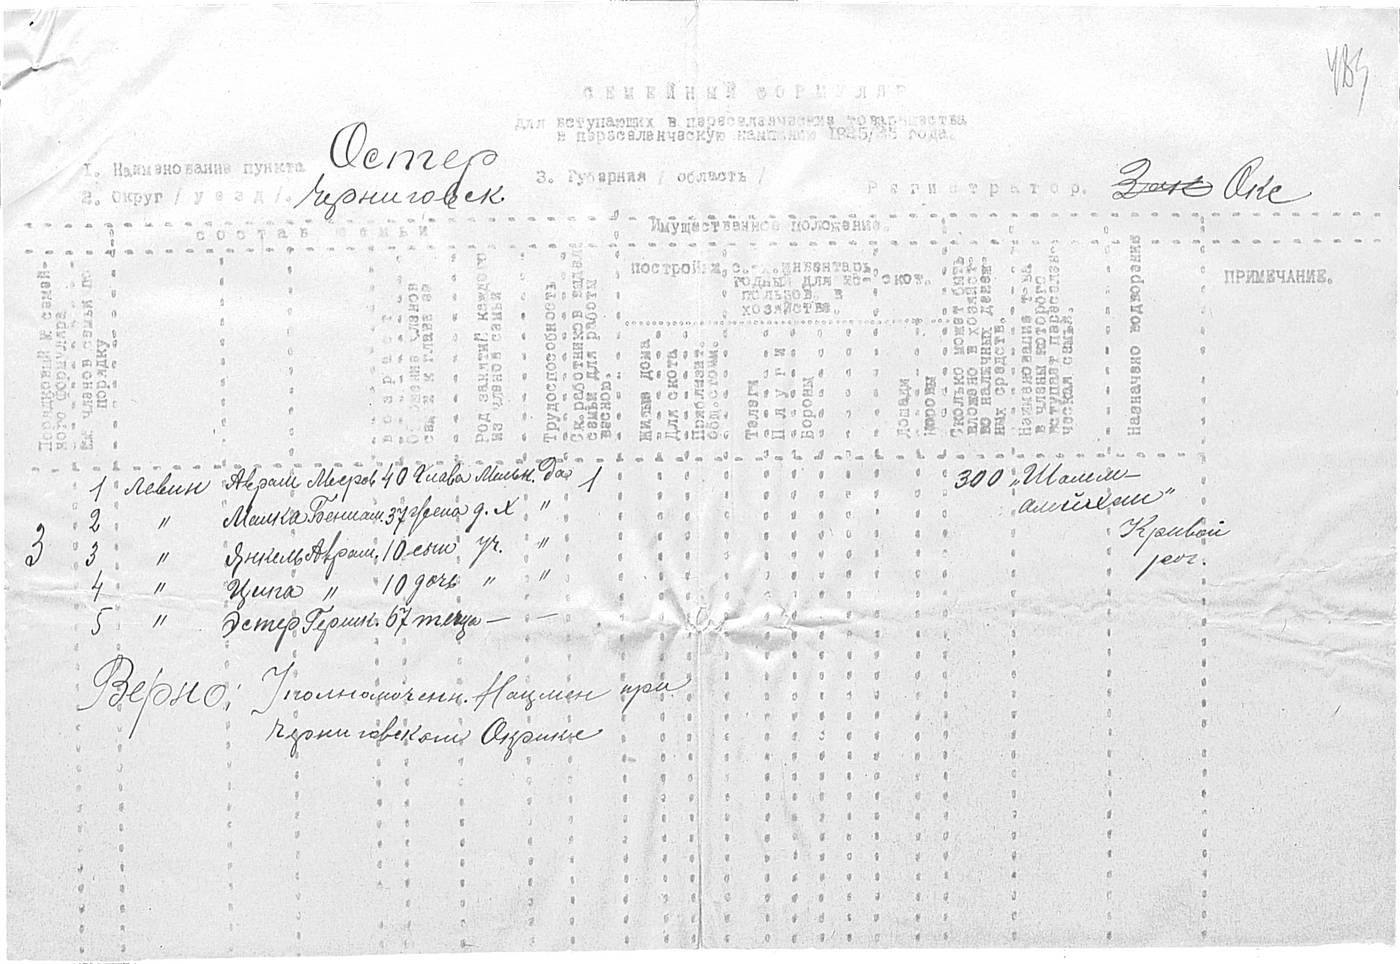 СЕМЕЙНЫЙ ФОРМУЛЯР
для вступающих в переселенческие товарищества
в переселенческую кампанию 1925/26 года.
1. Наименование пункта Остер
2. Округ / уезд /. Черниговск
3. Губерния / область /
Регистратор. Окс
СОСТАВ СЕМЬИ
Имущественное положение.
Порядковый № семейного формуляра
№№ членов семьи по порядку
возраст
Отношение членов семьи к главе ее
Род занятий каждого из членов семьи
Трудоспособность
Ск. работников выдел. семьи для работы весною.
постройки
с.-х. инвентарь, годный для использов. в хозяйстве.
скот.
Жилые дома
Для скота
Приблизит. общ. стоим.
Телеги
Плуги
Бороны
Лошади
Коровы
Сколько может быть вложено в хозяйство наличных денежных средств.
Наименование т-ва в члены которого вступает переселенческая семья.
Назначено водворение
ПРИМЕЧАНИЕ.
3
1 Левин Аврам Мееров 40 Глава Мельн. Да 1 300 „Шолем-
алейхем"
2 " Малка Бениам. 37 жена д. х "
Кривой
рог.
3 " Янкель Аврам. 10 сын уч. "
4 " Ципа " 10 дочь " "
5 " Эстер Гершк. 67 теща — —
Верно: Уполномоченн. Нацмен при
Черниговском Окрике